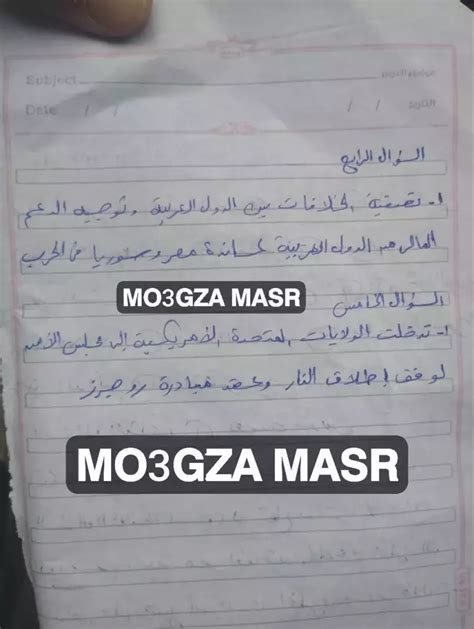 Subject
Date / /
التاريخ / /
السؤال الرابع
١- تصفية الخلافات بين الدول العربية وتوجيه الدعم
المالى من الدول العربية لمساندة مصر وسوريا فى الحرب
MO3GZA MASR
السؤال الخامس
١- تدخلت الولايات المتحدة الأمريكية إلى مجلس الأمن
لوقف إطلاق النار وعقد مبادرة روجيرز
MO3GZA MASR